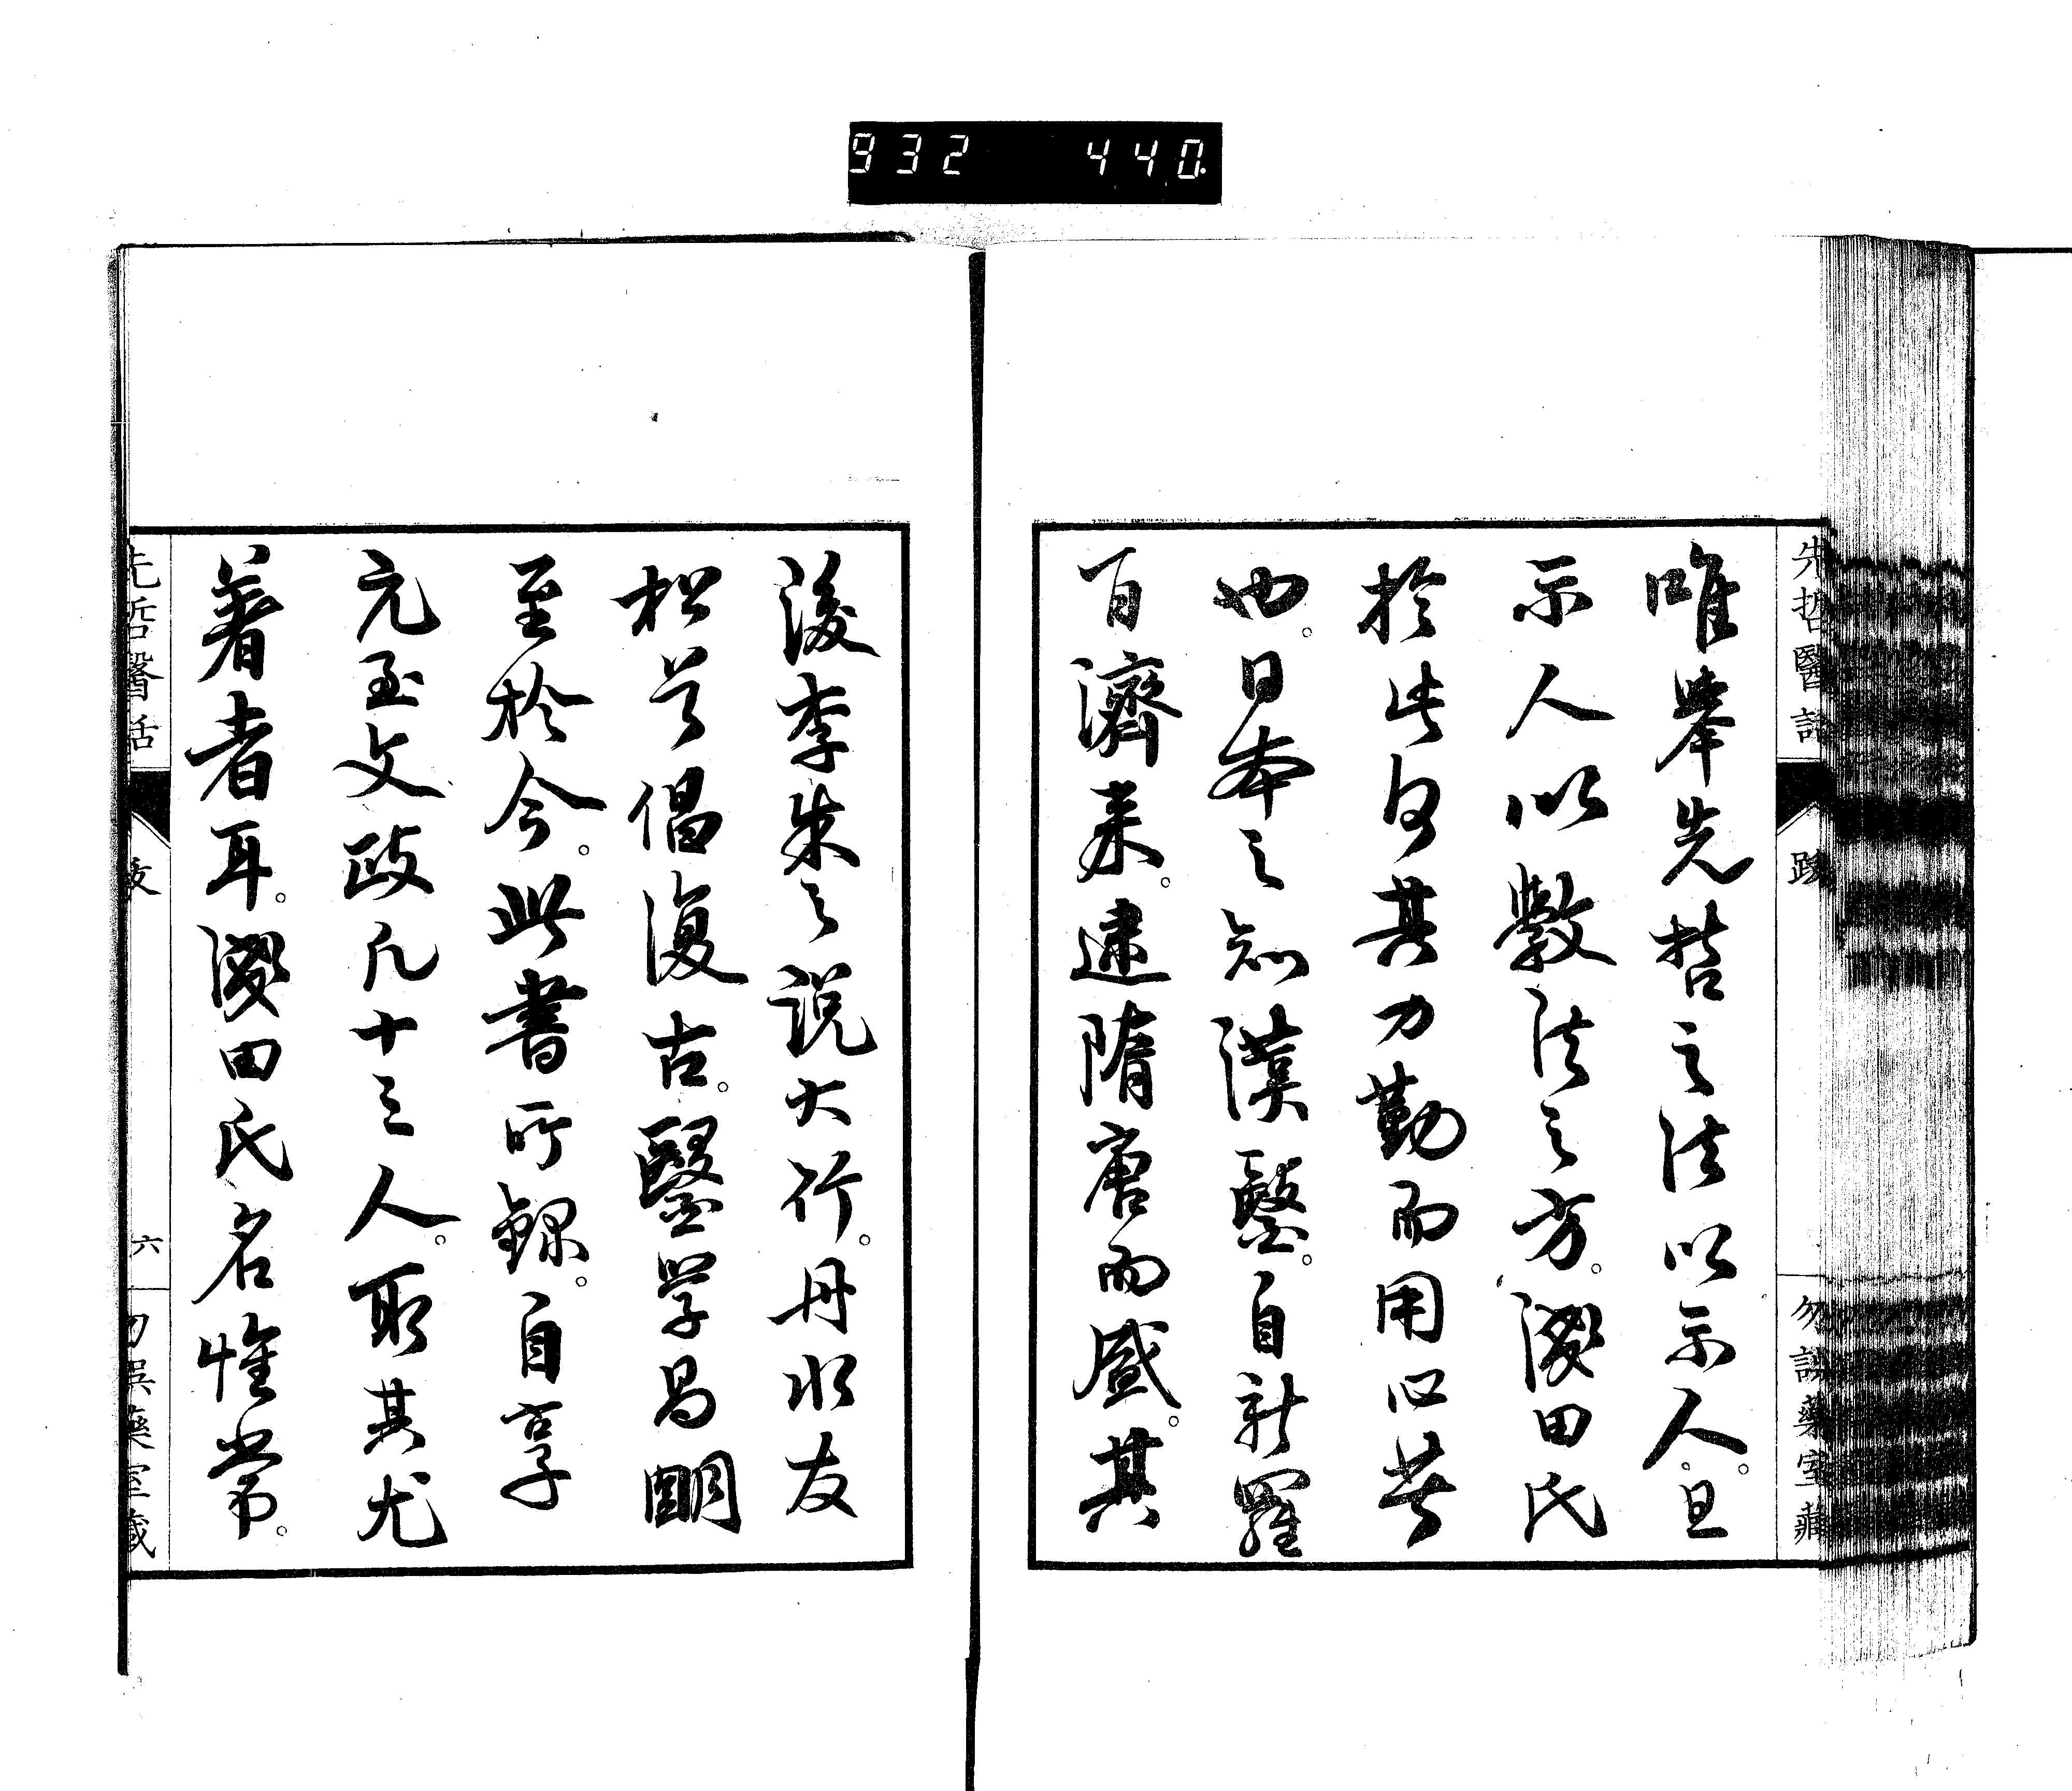 932 440.
先哲醫話
跋
勿誤藥室藏
唯舉先哲之法以示人。且
示人以獸法之方。淺田氏
於此何其力勤而用心苦
也。日本之知漢醫。自新羅
百濟來。逮隋唐而盛。其
後李朱之說大行。丹水友
松首倡復古。醫學昌明
至於今。此書所錄。自享
元至文政凡十三人。取其尤
著者耳。淺田氏名惟常。
先哲醫話
跋
六
勿誤藥室藏